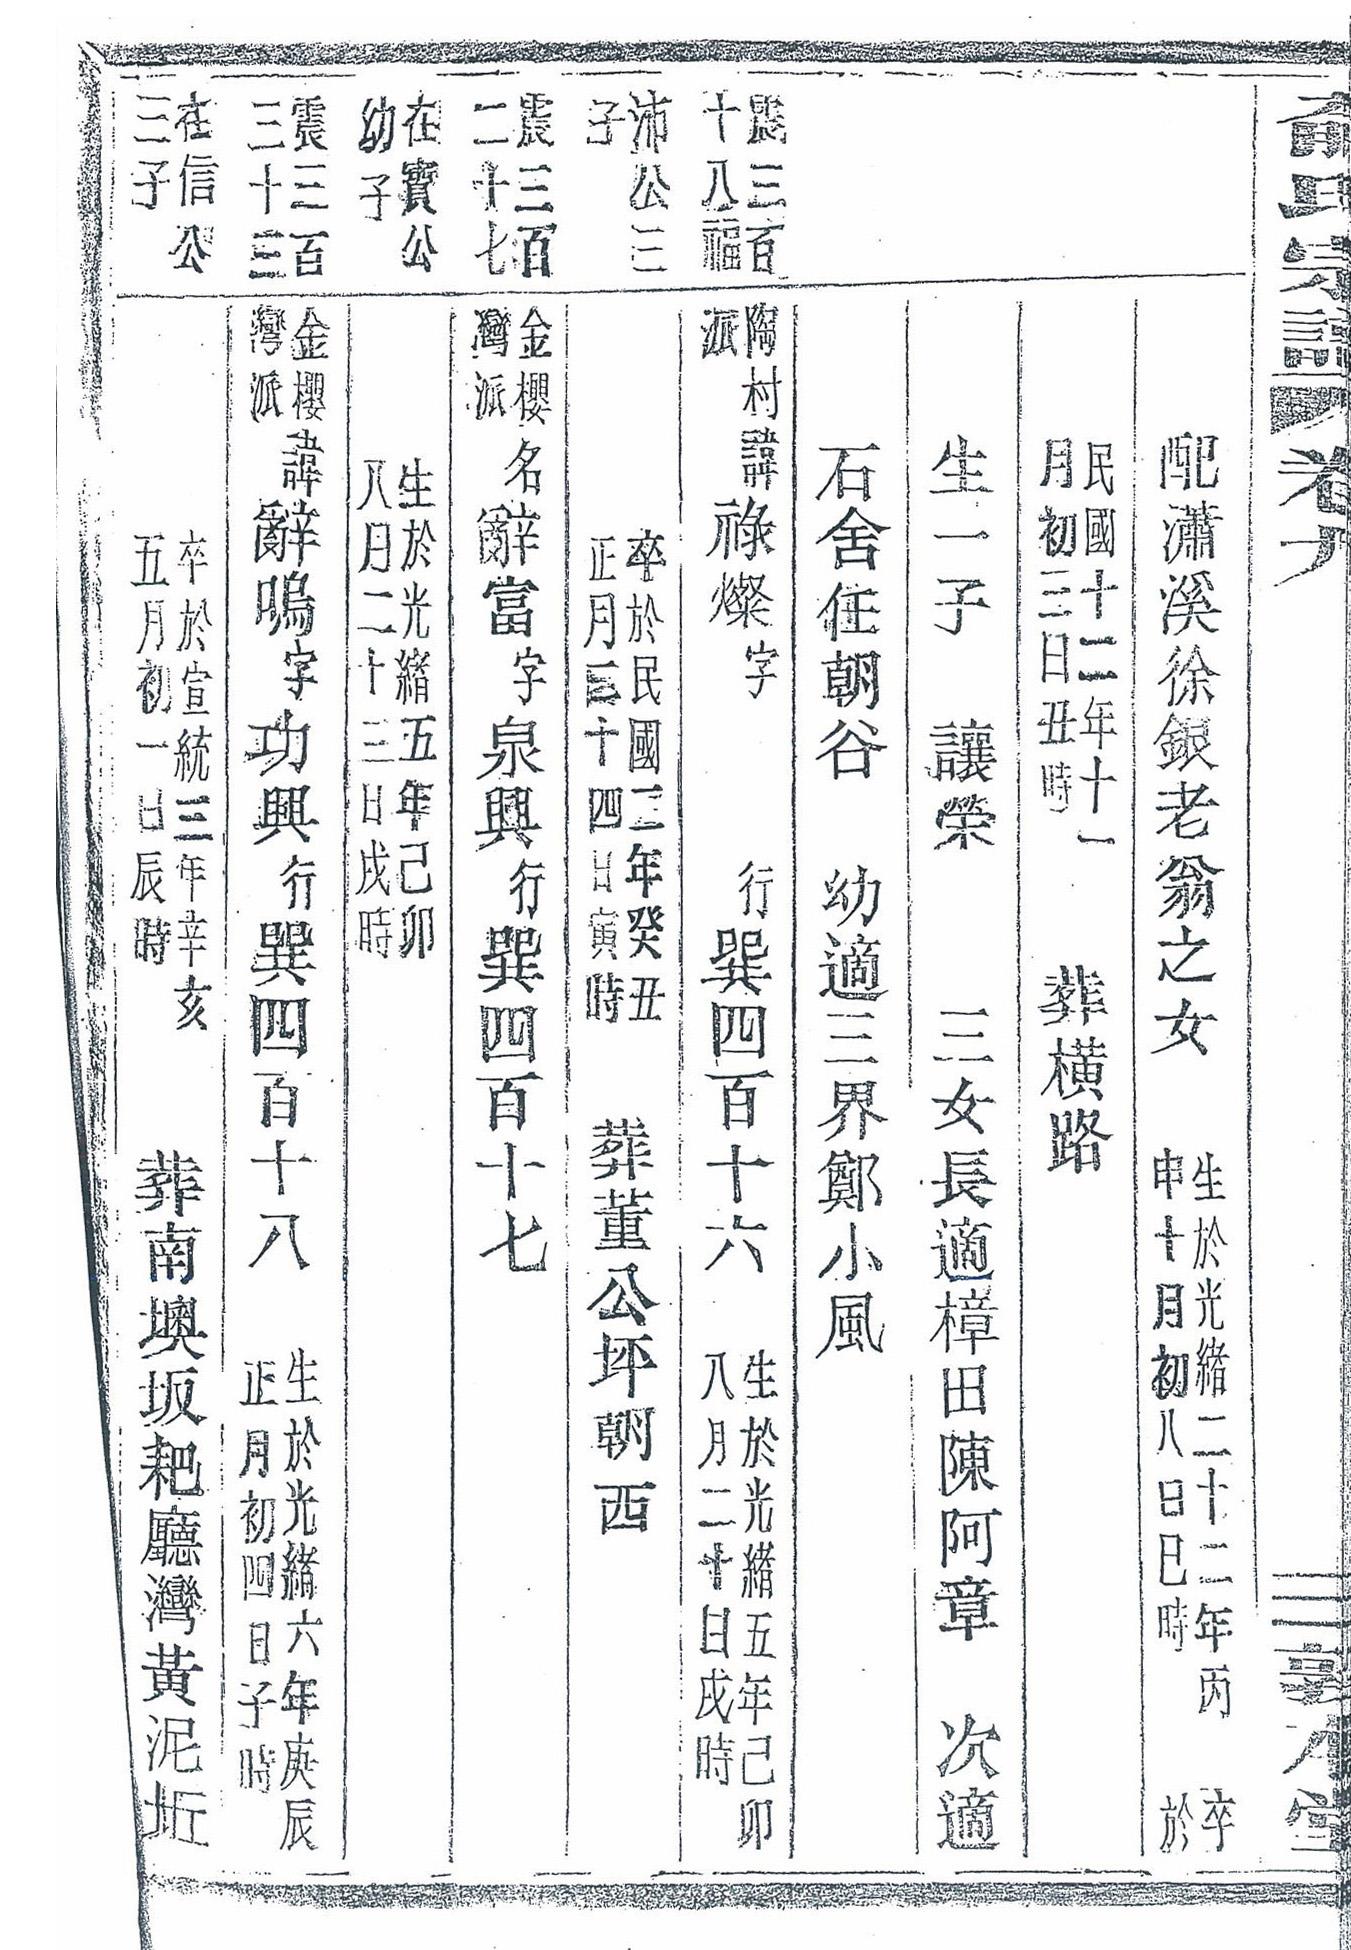 氏宗譜 卷 三 敦本堂
配瀟溪徐銀老翁之女 生於光緒二十二年丙
申十月初八日巳時 卒
於
民國十二年十一
月初三日丑時 葬橫路
生一子 讓榮 三女長適樟田陳阿章 次適
石舍任朝谷 幼適三界鄭小風
震三百
十八福
沛公三
子
陶村
派 諱祿燦字 行巽四百十六 生於光緒五年己卯
八月二十日戌時
卒於民國二年癸丑
正月三十四日寅時 葬董公坪朝西
震三百
二十七
在寶公
幼子
金櫻
灣派 名辭富字泉興行巽四百十七
生於光緒五年己卯
八月二十三日戌時
震三百
三十三
在信公
三子
金櫻
灣派 諱辭鳴字功興行巽四百十八 生於光緒六年庚辰
正月初四日子時
卒於宣統三年辛亥
五月初一日辰時 葬南墺坂耙廳灣黃泥坵